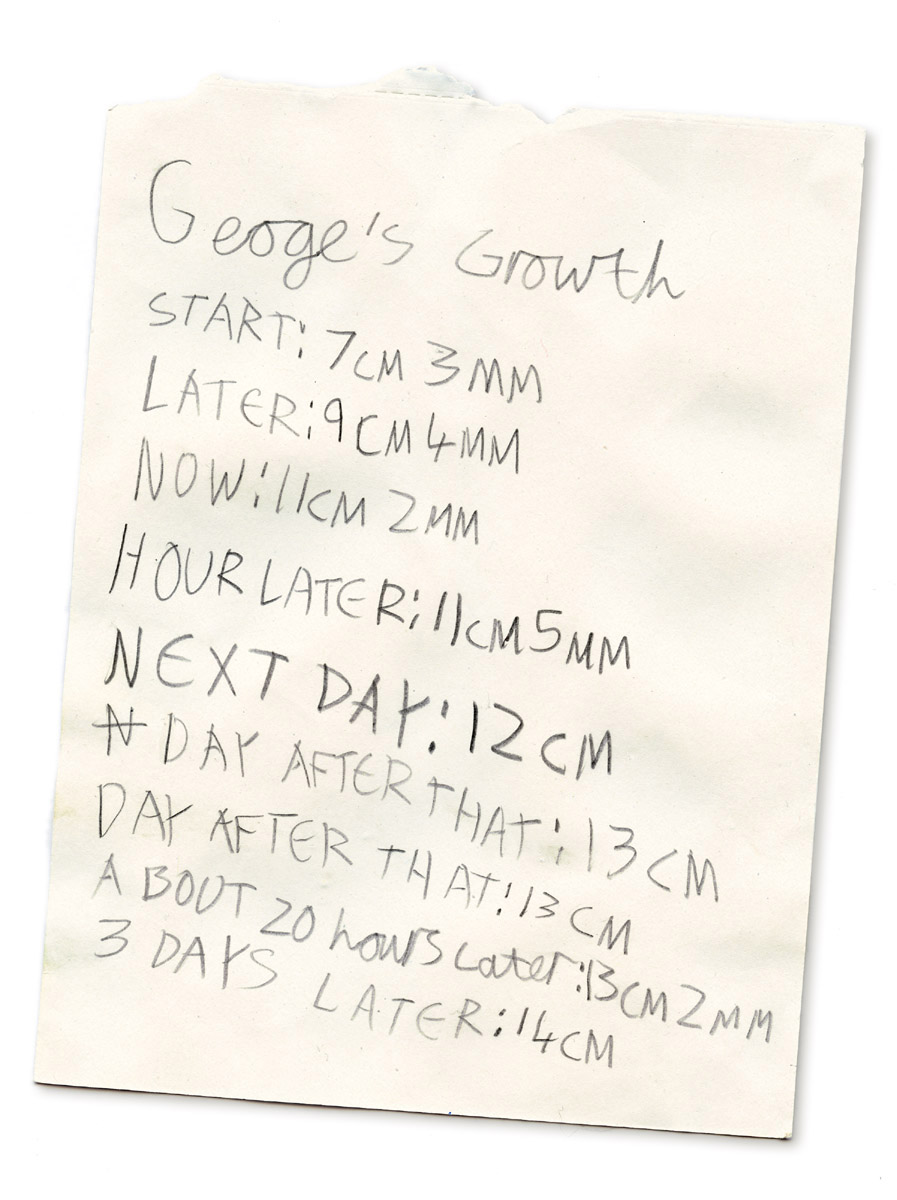 Geoge's Growth
START: 7CM 3MM
LATER: 9CM 4MM
NOW: 11CM 2MM
HOUR LATER: 11CM 5MM
NEXT DAY: 12CM
N DAY AFTER THAT: 13CM
DAY AFTER THAT: 13CM
ABOUT 20 hours Later: 13CM 2MM
3 DAYS LATER: 14CM